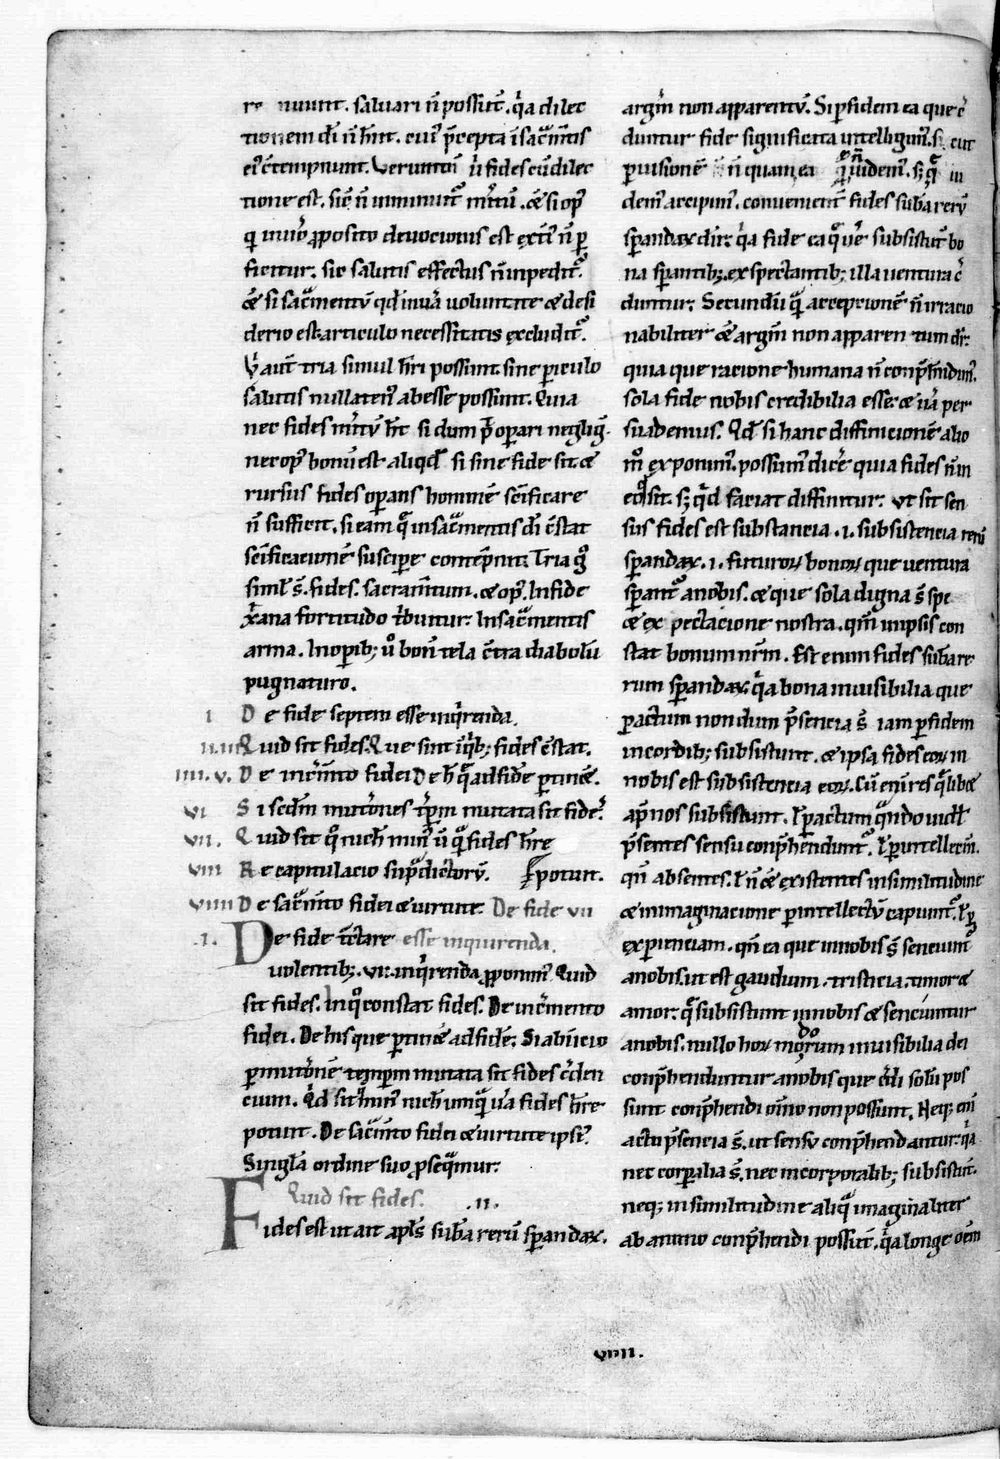 re nuunt. saluari n̄ possunt̄. q̇a dilec
tionem dī n̄ hn̄t. cui᷒ p̄cepta ī sac̄m̄tis
ei᷒ c̄tempnunt. Verunt̄n̄ u̇ fides cū dilec
tione est. sic̄ n̄ inminuit᷒ m̄itū. & si op᷒
q in uiro ꝓposito deuocionis est ext̄i᷒ n̄ ꝑ
ficitur; sic salutis effectus n̄ inpedit᷒.
& si sac̄mentū qd̄ in uā uoluntate & desi
derio est. articulo necessitatis excludit᷒.
H̄ aut̄ tria simul h̄ri possunt. sine ꝑiculo
salutis nullaten᷒ abesse possunt. Quia
nec fides m̄itū h̄t si dum p̄t oꝑari neglig̅.
nec op᷒ bonū est aliqd̄ si sine fide sit &
rursus fides oꝑans hominē sc̄ificare
n̄ sufficit. si eam q̄ in sac̄mentis dī c̄stat
sc̄ificacionē suscipe contēpnit. Tria g̊
simł s̄. fides. sacram̄tum. & op᷒. In fide
xp̄iana fortitudo t̄buitur. In sac̄mentis
arma. In oꝑib; ů boni᷒ tela c̄tra diabolū
pugnaturo.
I De fide septem esse inq̇renda.
II. III Quid sit fides. Que sint ī q̇b; fides c̄stat.
IIII. V. De inc̄m̄to fidei De h̄ q̄ ad fidē ꝑtinēt.
VI Si sc̄dm mut̄ones t̄pr̄m mutata sit fides.
VII. Quid sit q̊ nich̄ min᷒ ū q̄ fides h̄re
VIII Recapitulacio sup̄dictorū. potunt.
VIIII De sac̄m̄to fidei & uirtute. De fide VII
.I. De fide t̄ctare esse inquirenda.
uolentib;. VII. inq̇renda ꝓponim᷒ Quid
sit fides. In q̊ constat fides. De inc̄mento
fidei. De his que ꝑtinēt ad fidē; Si ab inicio
ꝑ mut̄onē tempor̄m mutata sit fides c̄den
cium. Qd̄ sit min᷒ nich̄ umq̄ u̇a fides h̄re
potuit. De sac̄m̄to fidei & uirtute ipsi᷒.
Singł̄a ordine suo ꝓseq̄mur.
Quid sit fides. .II.
Fides est ut ait apl̄s sub̄a rerū sꝑandaꝝ.
argm̄ non apparentū. Si ꝑ fidem ea que c̄
duntur fide significata intelligim᷒. sicut
ꝑ uisionē n̄ quam ea q̄ n̄ uidem᷒. s; q̄ ui
dem᷒ accipim᷒. conuenient̄ fides sub̄a rerū
sꝑandaꝝ dr̄. q̇a fide ea q̄ uē subsistūt bo
na sꝑantib; expectantib; illa uentura c̄
duntur; Secundū q̄ accepcionē n̄ irracio
nabiliter & argm̄ non apparentum dr̄.
quia que racione humana n̄ conp̄h̄ndim᷒.
sola fide nobis credibilia esse. & uā per
suademus. Qd̄ si hanc diffinicionē alio
m̊ exponim᷒. possum᷒ dicē quia fides n̄ in
eo q̇d sit. s; q̇d faciat diffinitur. ut sit sen
sus fides est substancia .i. subsistencia rerū
sꝑandaꝝ. i. futuroꝝ bonoꝝ que uentura
sꝑant᷒ a nobis. & que sola digna s̄ spe
& expectacione nostra. qm̄ in ipsis con
stat bonum nr̄m. Est enim fides sub̄a re
rum sꝑandaꝝ. q̇a bona inuisibilia que
ꝑ actum nondum p̄sencia s̄ iam ꝑ fidem
in cordib; subsistunt. & ipsa fides eoꝝ in
nobis est subsistencia eoꝝ. Cū eni᷒ res q̄libet
ap̄ nos subsistunt. ł ꝑ actum q̄ndo uidel̄
p̄sentes sensu conp̄hendunt᷒. ł ꝑ intellect̄m.
qn̄ absentes. ł n̄ & existentes in similitudine
& inmaginacione ꝑ intellectū capiunt᷒. ł ꝑ
expienciam. qn̄ ea que in nobis s̄ senciunt᷒
a nobis. ut est gaudium. tristicia. timor &
amor. q̄ subsistunt in nobis & senciuntur
a nobis. nullo hoꝝ modorum inuisibilia dei
conp̄henduntur a nobis que c̄di solū pos
sunt conp̄hendi om̄o non possunt. Neq; enī
actu p̄sencia s̄. ut sensu conp̄hendantur. q̇a
nec corꝑalia s̄. nec in corporalib; subsistūt.
neq; in similitudine aliq̄ imaginaliter
ab animo conp̄hendi possūt. q̇a longe om̄
VIIII.